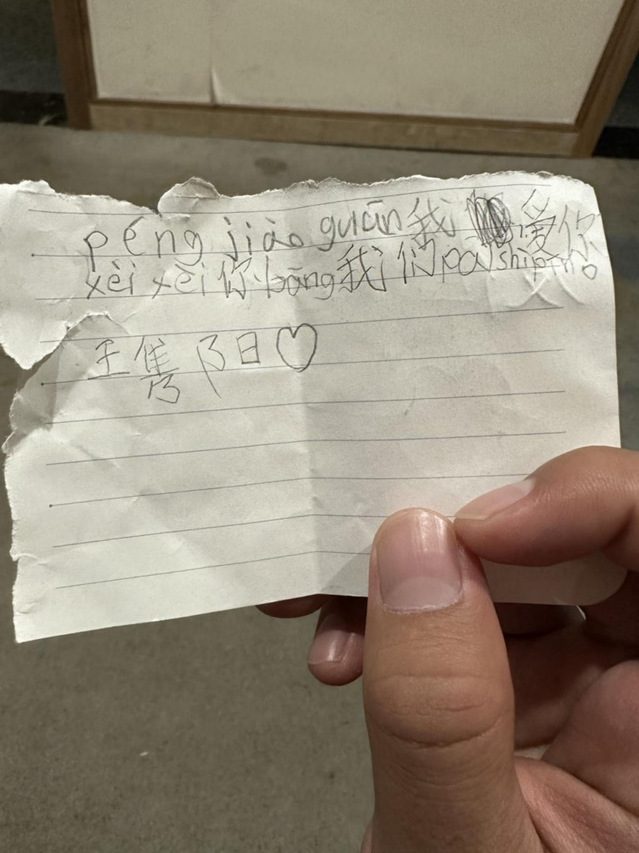 péng jiào guān我爱你
xèi xèi你bāng我们pāi shìpín。
王隽阳♡